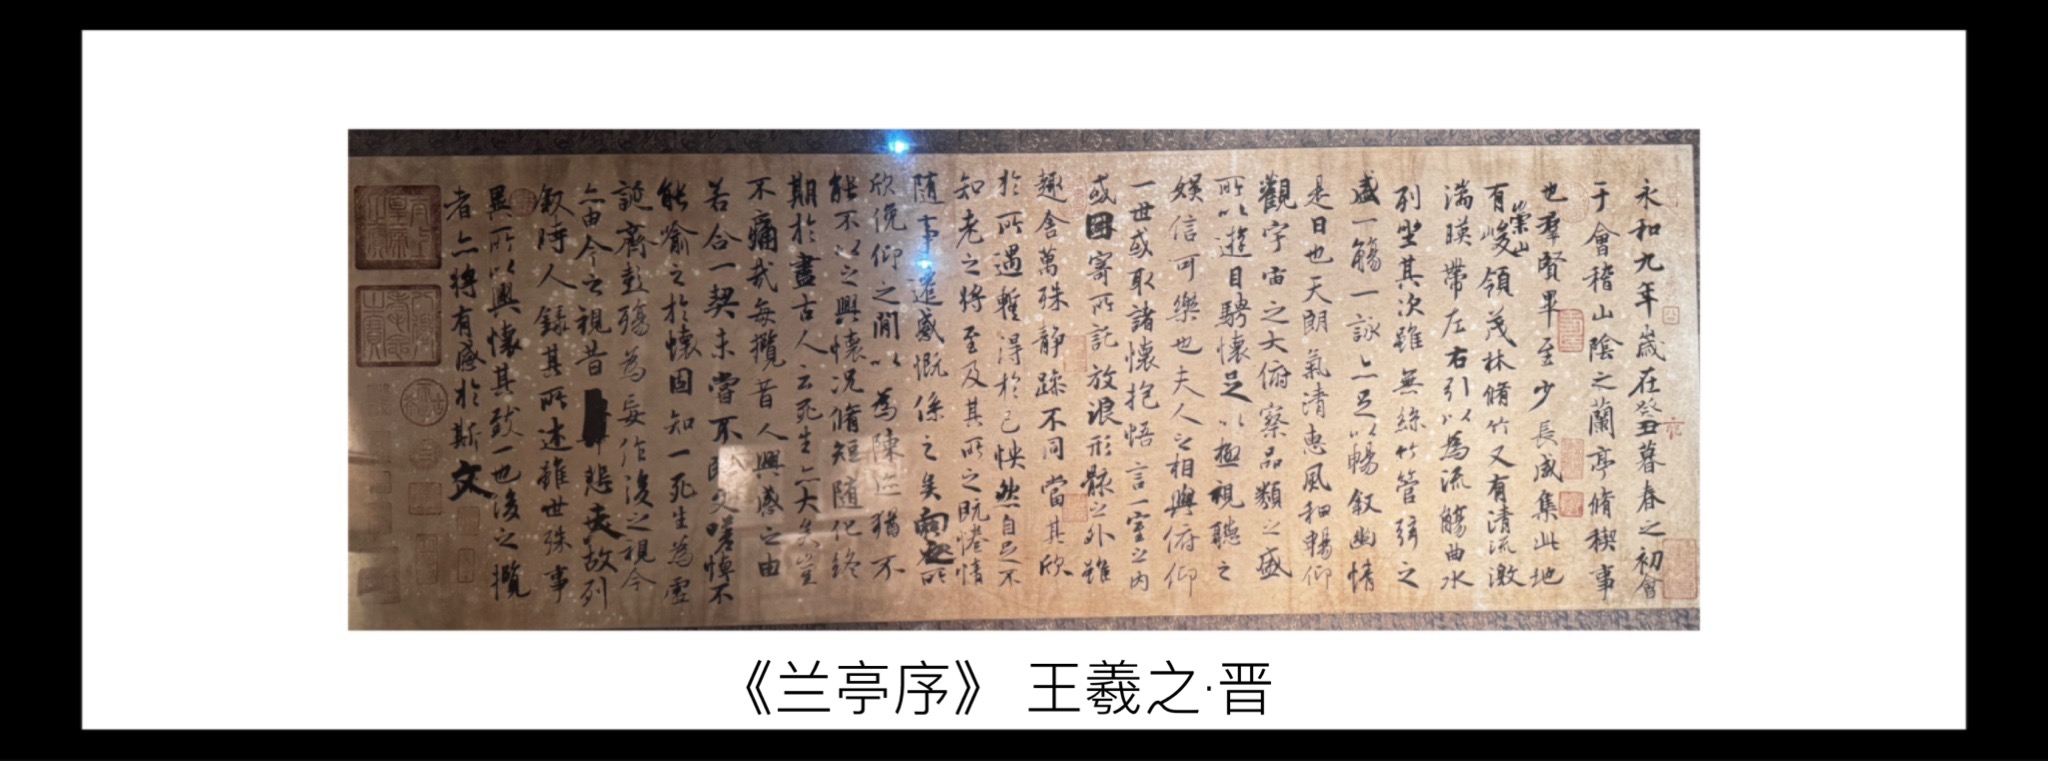 永和九年歲在癸丑暮春之初會
于會稽山陰之蘭亭脩稧事
也羣賢畢至少長咸集此地
有崇山峻領茂林脩竹又有清流激
湍暎帶左右引以為流觴曲水
列坐其次雖無絲竹管弦之
盛一觴一詠亦足以暢敘幽情
是日也天朗氣清惠風和暢仰
觀宇宙之大俯察品類之盛
所以遊目騁懷足以極視聽之
娛信可樂也夫人之相與俯仰
一世或取諸懷抱悟言一室之內
或因寄所託放浪形骸之外雖
趣舍萬殊靜躁不同當其欣
於所遇暫得於己怏然自足不
知老之將至及其所之既惓情
隨事遷感慨係之矣向之所
欣俛仰之閒以為陳迹猶不
能不以之興懷況脩短隨化終
期於盡古人云死生亦大矣豈
不痛哉每攬昔人興感之由
若合一契未嘗不臨文嗟悼不
能喻之於懷固知一死生為虛
誕齊彭殤為妄作後之視今
亦由今之視昔悲夫故列
敘時人錄其所述雖世殊事
異所以興懷其致一也後之攬
者亦將有感於斯文
《兰亭序》 王羲之·晋